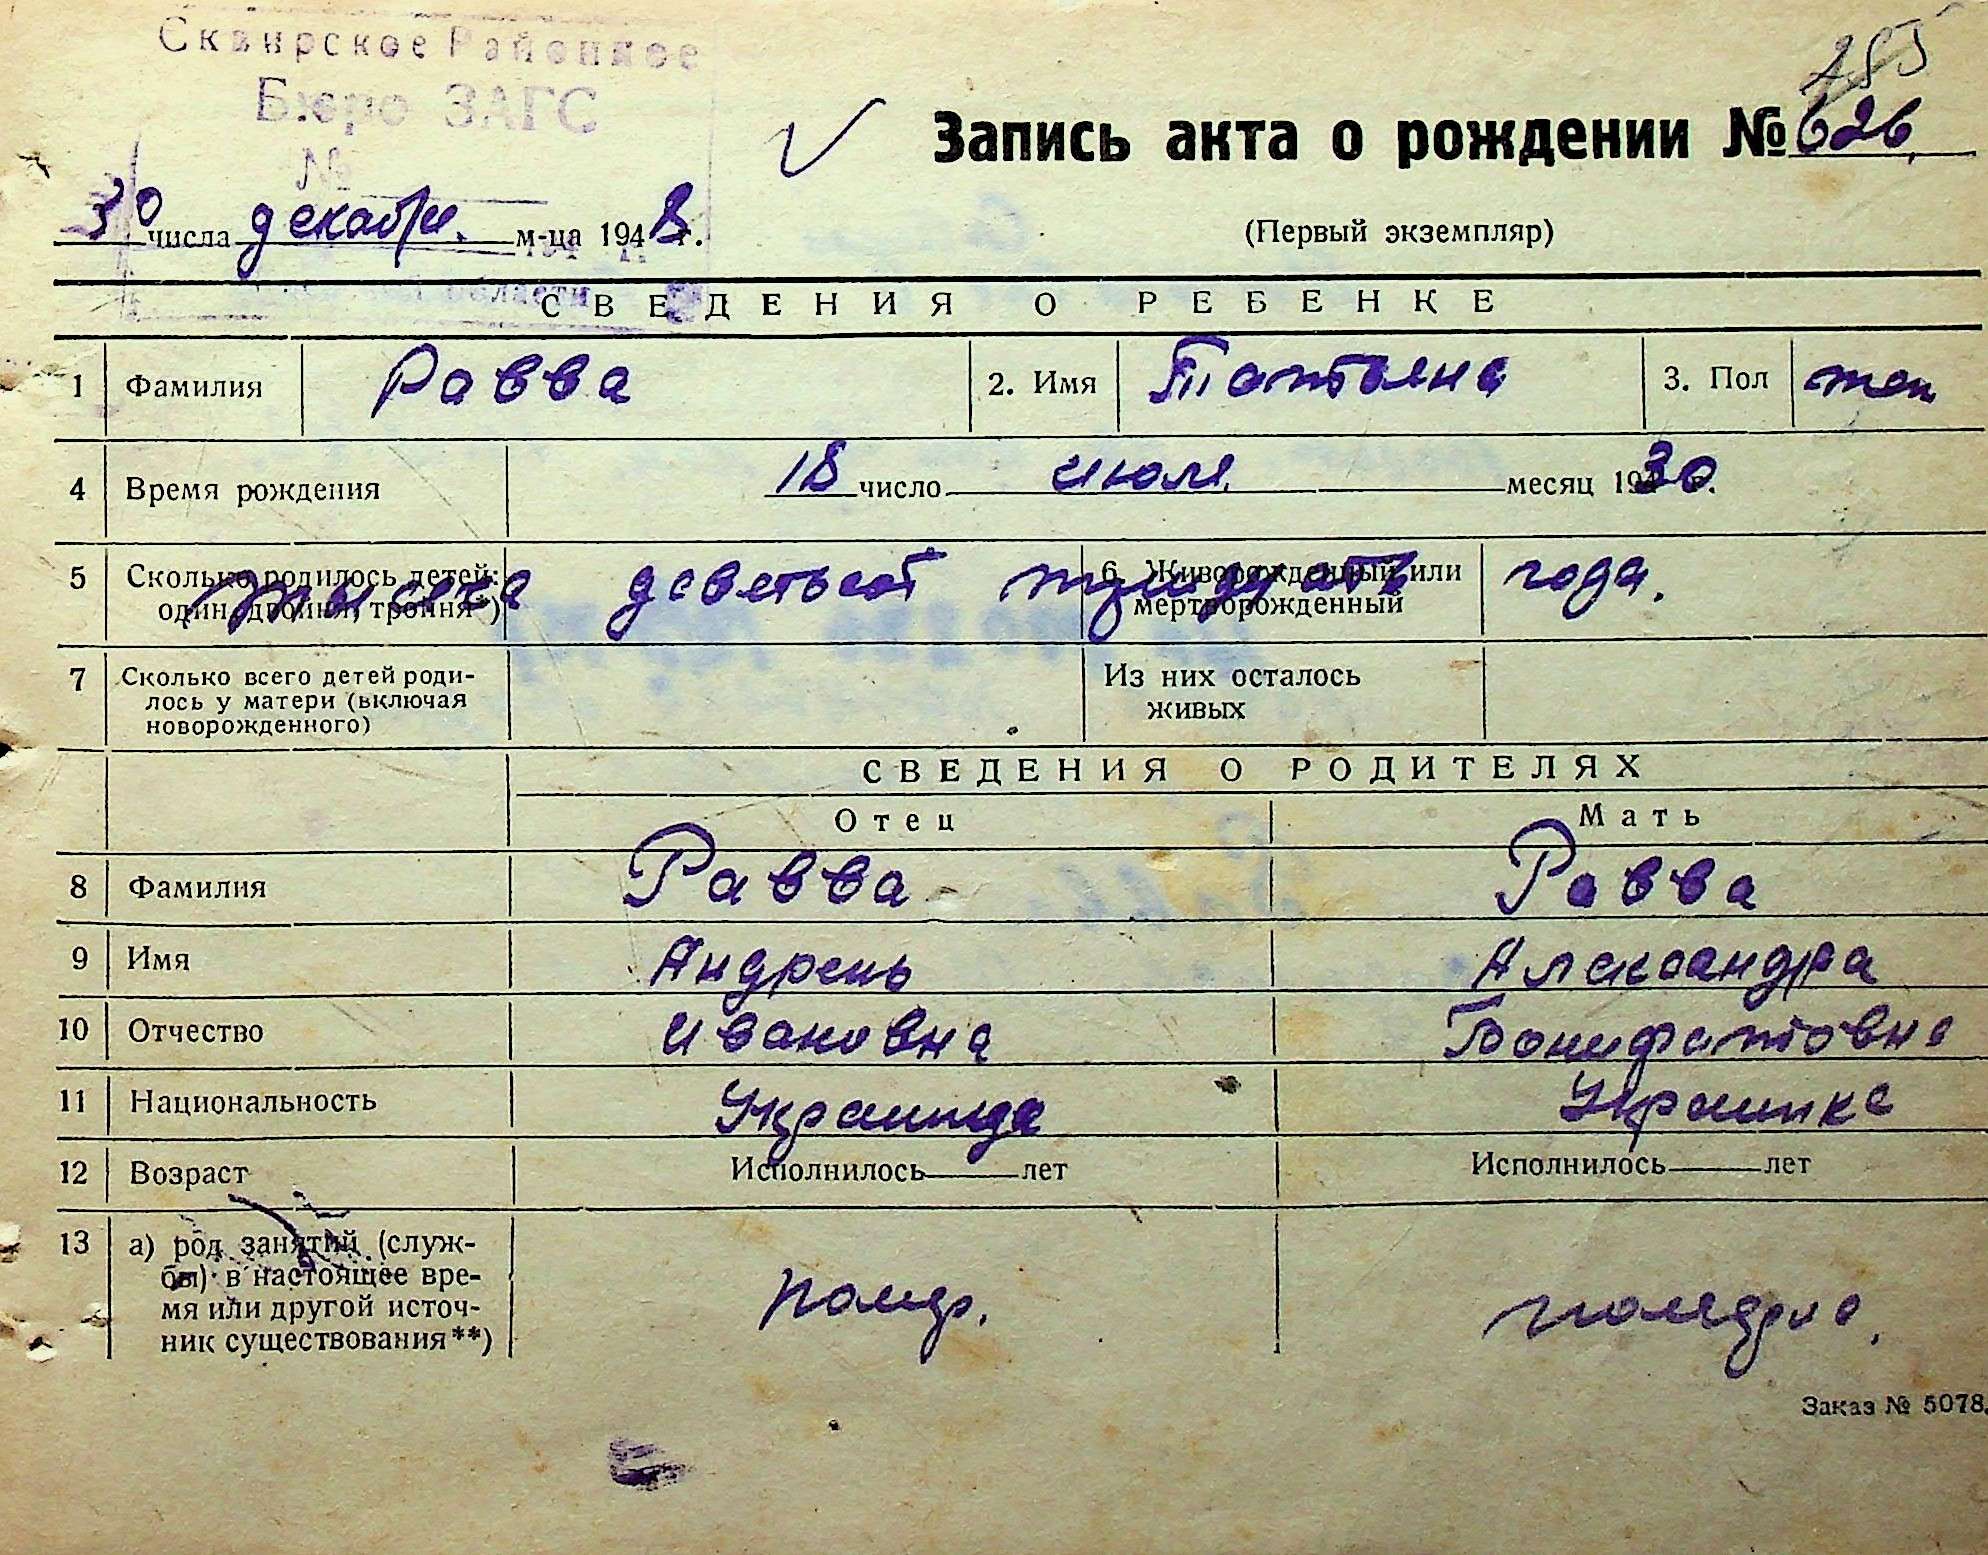 Сквирское Районное
Бюро ЗАГС
№
255
Запись акта о рождении № 626
30 числа декабря. м-ца 1948 г.
(Первый экземпляр)
области
СВЕДЕНИЯ О РЕБЕНКЕ
1 Фамилия Равва 2. Имя Татьяна 3. Пол жен
4 Время рождения 18 число июля месяц 1930 г.
5 Сколько родилось детей: один, двойня, тройня*) 6. Живорожденный или мертворожденный
тысяча девятьсот тридцать года.
7 Сколько всего детей роди-
лось у матери (включая
новорожденного)
Из них осталось
живых
СВЕДЕНИЯ О РОДИТЕЛЯХ
Отец Мать
8 Фамилия Равва Равва
9 Имя Андрей Александра
10 Отчество Ивановна Бонифатовна
11 Национальность Украинца Украинка
12 Возраст Исполнилось лет Исполнилось лет
13 а) род занятий (служ-
бы) в настоящее вре-
мя или другой источ-
ник существования**)
Заказ № 5078.